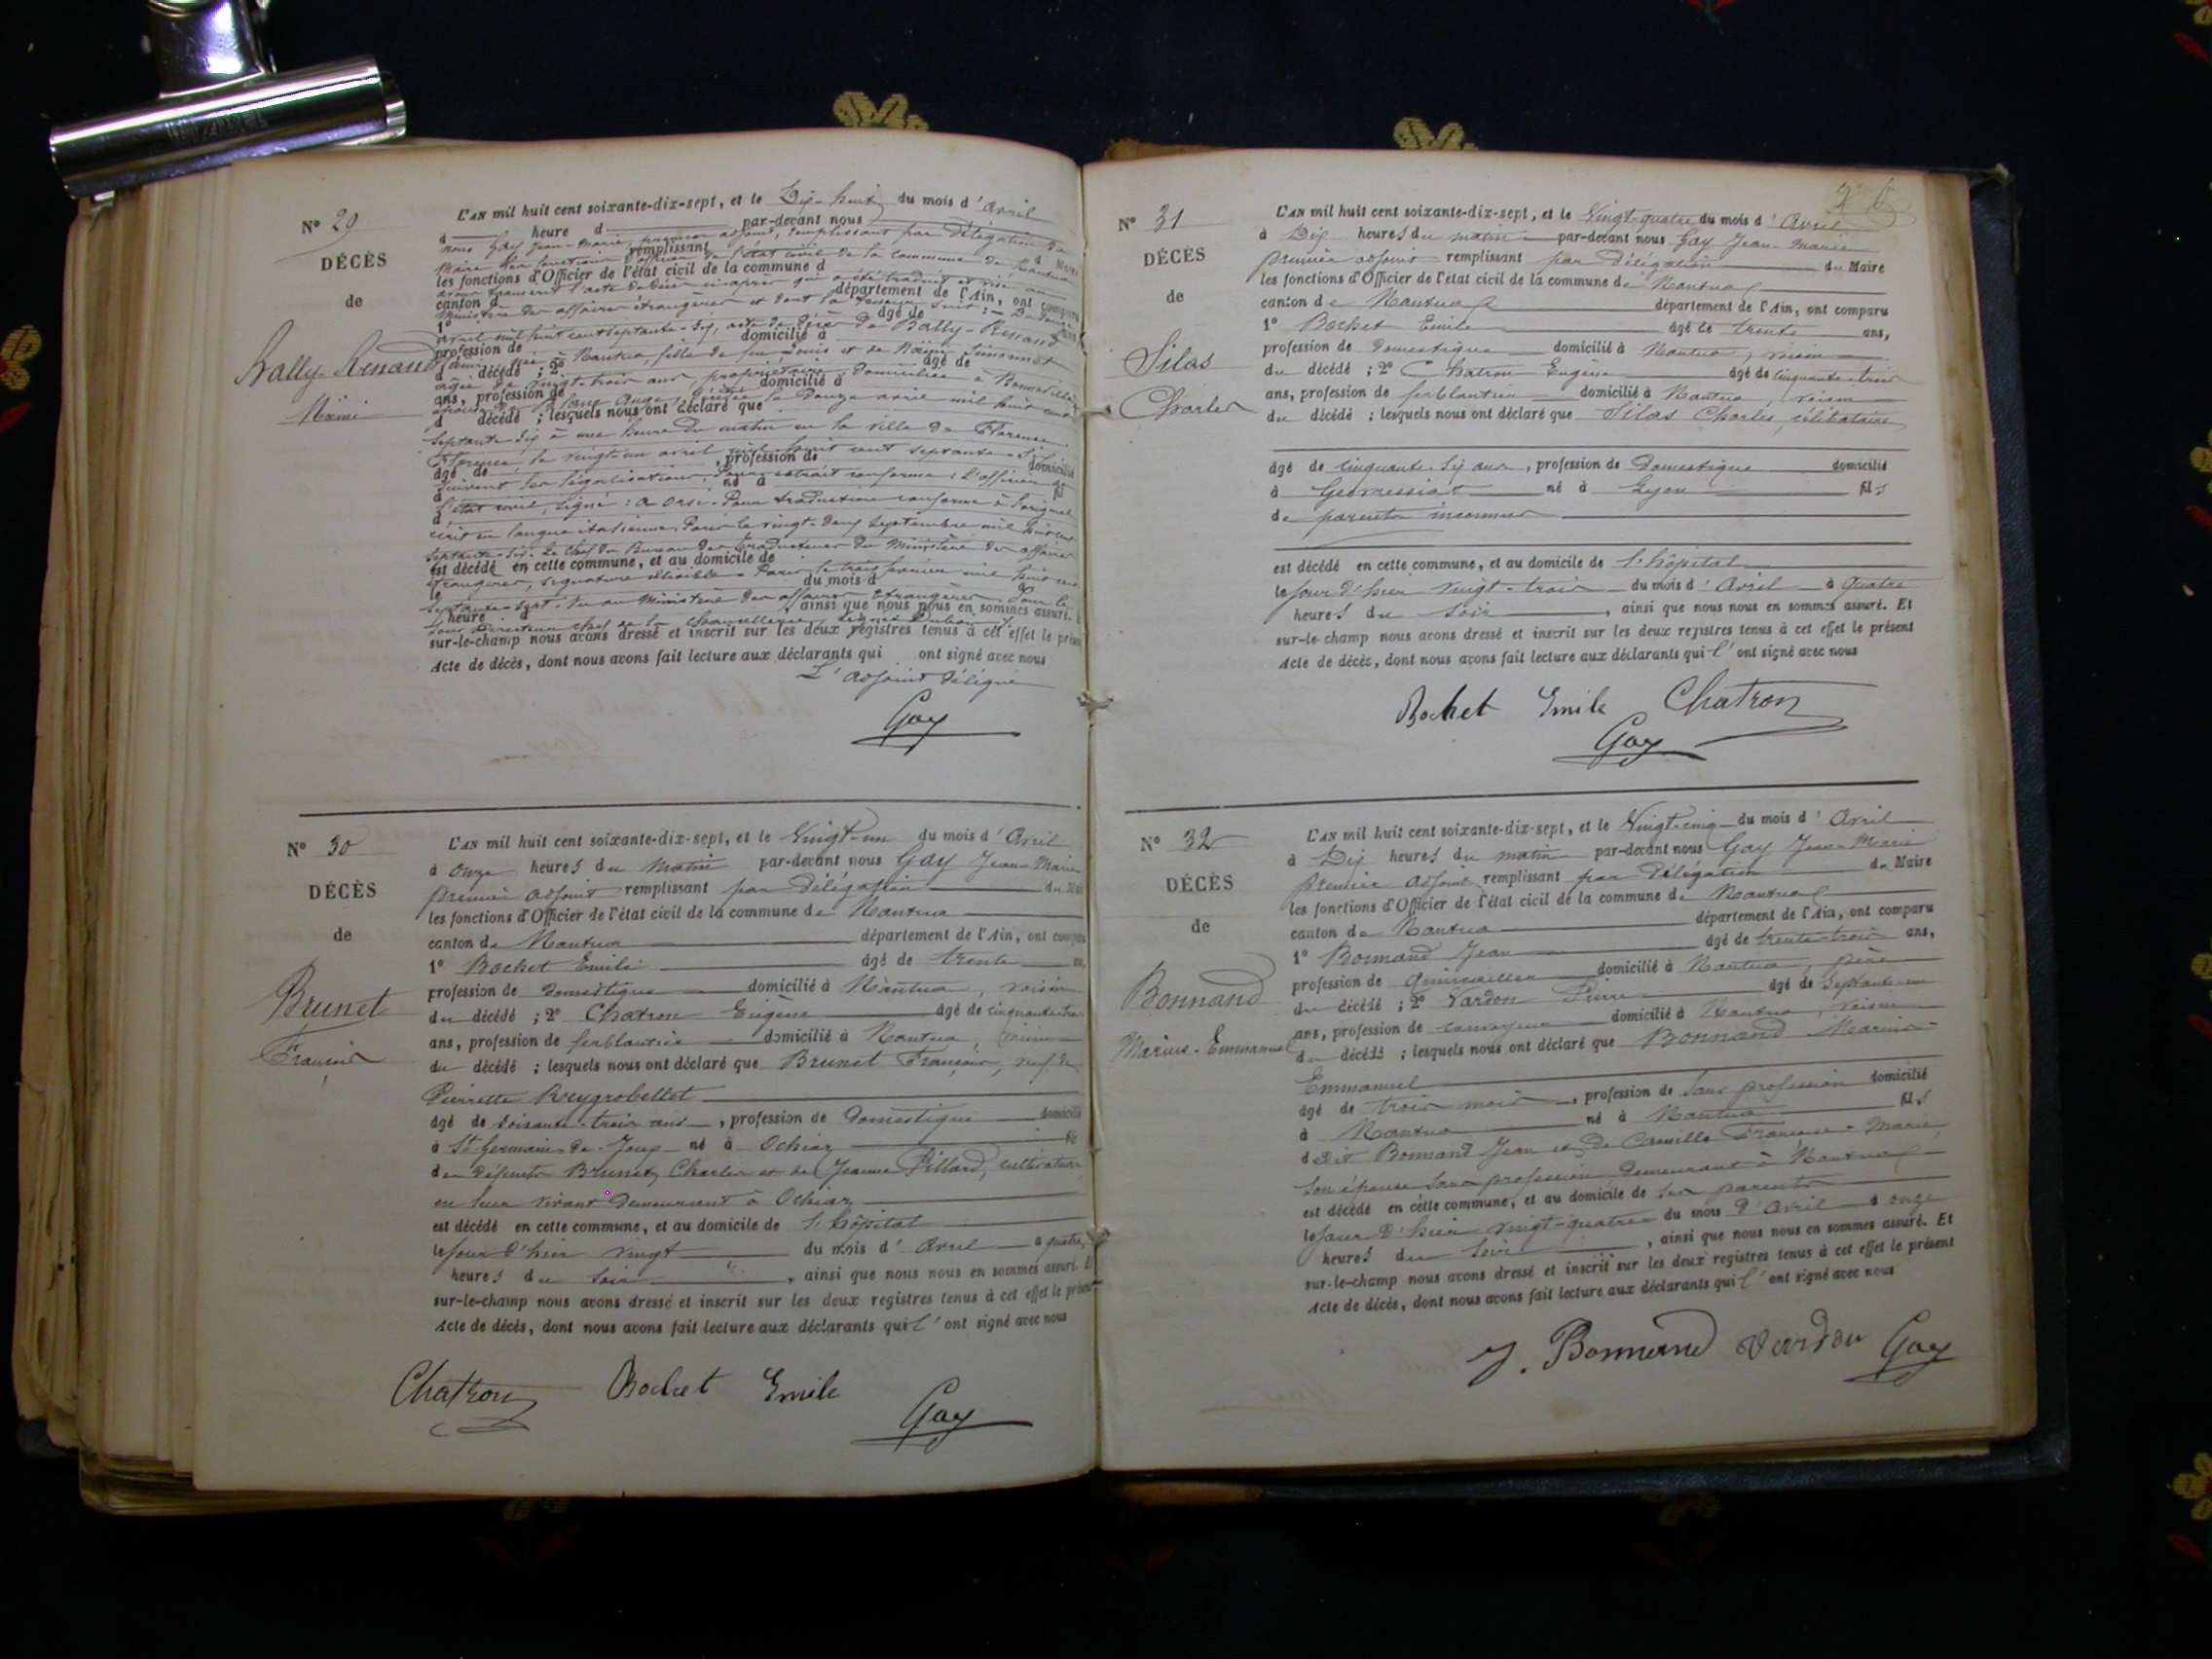 N° 29
DÉCÈS
de
Bally-Renand
Naïmi
L'AN mil huit cent soixante-dix-sept, et le Dix-huit du mois d'Avril
à heure d par-devant nous
nous Gay Jean-Marie, premier adjoint, remplissant par délégation du
remplissant d Maire
Maire les fonctions d'officier de l'état civil de la commune de Nantua
les fonctions d'Officier de l'état civil de la commune d
avons transcrit l'acte de décès ci-après qui a été traduit et visé au
canton d département de l'Ain, ont comparu
Ministère des affaires étrangères et dont la teneur suit :
1° âgé de ans,
avril mil huit cent septante-six, acte de décès de Bally-Renand
profession de domicilié à
née à Nantua, fille de feu Louis et de
d décédé ; 2° âgé de
âgée de vingt-trois ans, propriétaire, domiciliée à
ans, profession de domicilié à
décédée le Douze avril mil huit cent
d décédé ; lesquels nous ont déclaré que
septante-six à une heure du matin en la ville de Florence
Florence le vingt un avril mil huit cent septante-six
âgé de , profession de domicilié
suivent les légalisations. Pour extrait conforme : L'officier de
à né à fil
l'état civil, signé : A Orsi. Pour traduction conforme à l'original
d
écrit en langue italienne, Paris le vingt-deux septembre mil huit cent
septante-six. Le Chef du Bureau des Traducteurs du Ministère des affaires
est décédé en cette commune, et au domicile de
étrangères, signature illisible. Paris le trois janvier mil huit cent
le du mois d à
septante-sept. Vu au Ministère des affaires Etrangères. Pour le
heure d , ainsi que nous nous en sommes assuré. Et
Sous Directeur chef de la Chancellerie, signé Dubois
sur-le-champ nous avons dressé et inscrit sur les deux registres tenus à cet effet le présent
Acte de décès, dont nous avons fait lecture aux déclarants qui ont signé avec nous
L'adjoint délégué
Gay
N° 30
DÉCÈS
de
Brunet
François
L'AN mil huit cent soixante-dix-sept, et le Vingt-un du mois d'Avril
à onze heures du matin par-devant nous Gay Jean-Marie
premier adjoint remplissant par délégation du Maire
les fonctions d'Officier de l'état civil de la commune de Nantua
canton de Nantua département de l'Ain, ont comparu
1° Bochet Emile âgé de trente ans,
profession de domestique domicilié à Nantua, voisin
du décédé ; 2° Chatron Eugène âgé de cinquante trois
ans, profession de ferblantier domicilié à Nantua, voisin
du décédé ; lesquels nous ont déclaré que Brunet François, veuf de
Pierrette Reygrobellet
âgé de soixante-trois ans , profession de domestique domicilié
à St Germain de Joux né à Ochiaz fils
des défunts Brunet Charles et de Jeanne Pillard, cultivateurs
en leur vivant demeurant à Ochiaz
est décédé en cette commune, et au domicile de l'hôpital
le jour d'hier vingt du mois d'Avril à quatre
heures du soir , ainsi que nous nous en sommes assuré. Et
sur-le-champ nous avons dressé et inscrit sur les deux registres tenus à cet effet le présent
Acte de décès, dont nous avons fait lecture aux déclarants qui l'ont signé avec nous
Chatron Bochet Emile
Gay
N° 31
DÉCÈS
de
Silas
Charles
L'AN mil huit cent soixante-dix-sept, et le Vingt-quatre du mois d'Avril
à Dix heures du matin par-devant nous Gay Jean-Marie
premier adjoint remplissant par délégation du Maire
les fonctions d'Officier de l'état civil de la commune de Nantua
canton de Nantua département de l'Ain, ont comparu
1° Bochet Emile âgé de trente ans,
profession de domestique domicilié à Nantua, voisin
du décédé ; 2° Chatron Eugène âgé de cinquante-trois
ans, profession de ferblantier domicilié à Nantua, voisin
du décédé ; lesquels nous ont déclaré que Silas Charles, célibataire
âgé de cinquante-six ans , profession de Domestique domicilié
à Geovressiat né à Lyon fils
de parents inconnus
est décédé en cette commune, et au domicile de l'hôpital
le jour d'hier vingt-trois du mois d'Avril à quatre
heures du soir , ainsi que nous nous en sommes assuré. Et
sur-le-champ nous avons dressé et inscrit sur les deux registres tenus à cet effet le présent
Acte de décès, dont nous avons fait lecture aux déclarants qui l'ont signé avec nous
Bochet Emile Chatron
Gay
N° 32
DÉCÈS
de
Bonnand
Marius-Emmanuel
L'AN mil huit cent soixante-dix-sept, et le Vingt-cinq du mois d'Avril
à Dix heures du matin par-devant nous Gay Jean-Marie
premier adjoint remplissant par délégation du Maire
les fonctions d'Officier de l'état civil de la commune de Nantua
canton de Nantua département de l'Ain, ont comparu
1° Bonnand Jean âgé de trente-trois ans,
profession de Quincailler domicilié à Nantua, père
du décédé ; 2° Vardon Pierre âgé de septante-un
ans, profession de domicilié à Nantua, voisin
du décédé ; lesquels nous ont déclaré que Bonnand Marius-
Emmanuel
âgé de trois mois , profession de sans profession domicilié
à Nantua né à Nantua fils
dudit Bonnand Jean et de Camille Françoise-Marie
son épouse sans profession demeurant à Nantua
est décédé en cette commune, et au domicile de ses parents
le jour d'hier vingt-quatre du mois d'Avril à onze
heures du soir , ainsi que nous nous en sommes assuré. Et
sur-le-champ nous avons dressé et inscrit sur les deux registres tenus à cet effet le présent
Acte de décès, dont nous avons fait lecture aux déclarants qui l'ont signé avec nous
J. Bonnand Vardon Gay